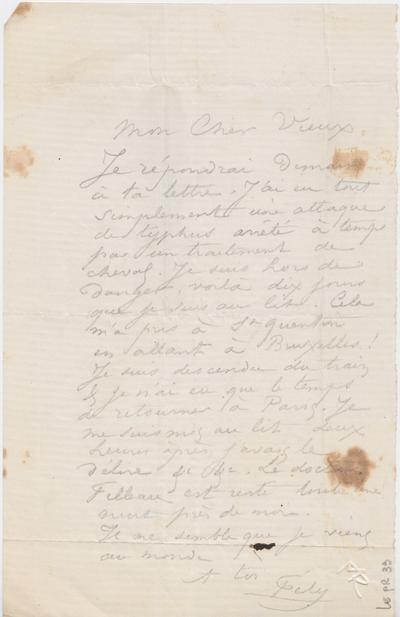 Mon Cher Vieux,
Je répondrai Demain
à ta lettre. J'ai eu tout
simplement une attaque
de typhus arrêté à temps
par un traitement de
cheval. Je suis hors de
Danger, voilà dix jours
que je suis au lit. Cela
m'a pris à St quentin
en allant à Bruxelles!
Je suis descendu du train
& je n'ai eu que le temps
de retourner à Paris. Je
me suis mis au lit deux
heures après j'avais le
Délire &c &c. Le docteur
Filleau est resté toute une
nuit près de moi.
Il me semble que je viens
au monde
A toi Fély
LEpR 33